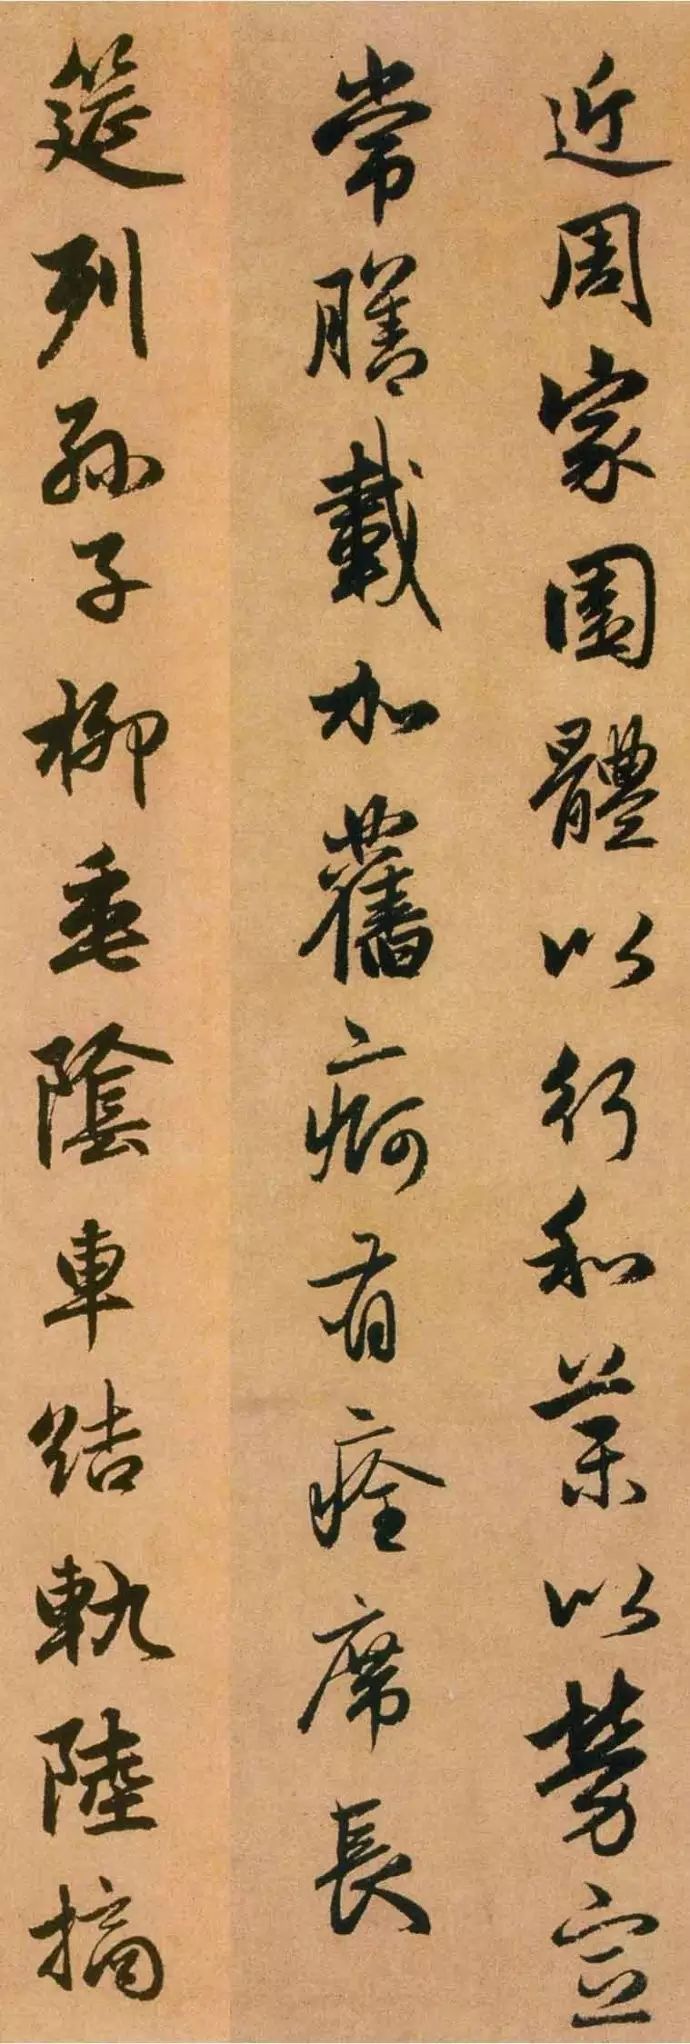 近周家園體以行和藥以勞宣
常膳載加舊痾有痊席長
筵列孫子柳垂陰車結軌陸摘